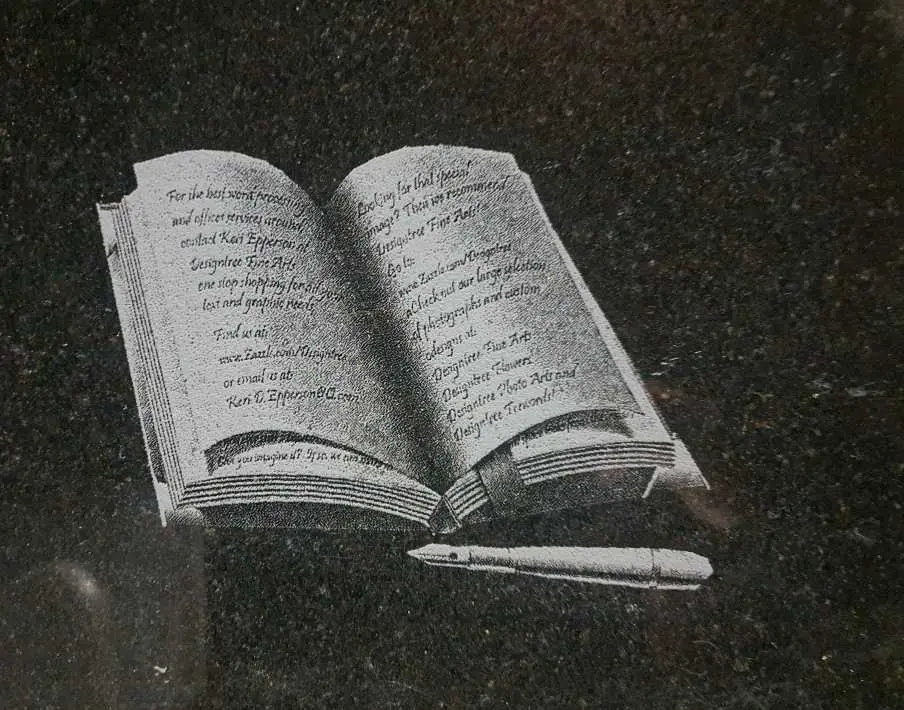 For the best word processing
and office services around,
contact Keri Epperson at
Designtree Fine Arts
one stop shopping for all your
text and graphic needs
Find us at:
www.Zazzle.com/Designtree
or email us at:
Keri D. Epperson@Q.com
Can you imagine it? If so, we can
Looking for that special
image? Then we recommend
Designtree Fine Arts!
Go to:
www.Zazzle.com/Designtree
Check out our large selection
of photographs and custom
designs at:
Designtree Fine Arts
Designtree Flowers
Designtree Photo Arts and
Designtree Treewords!